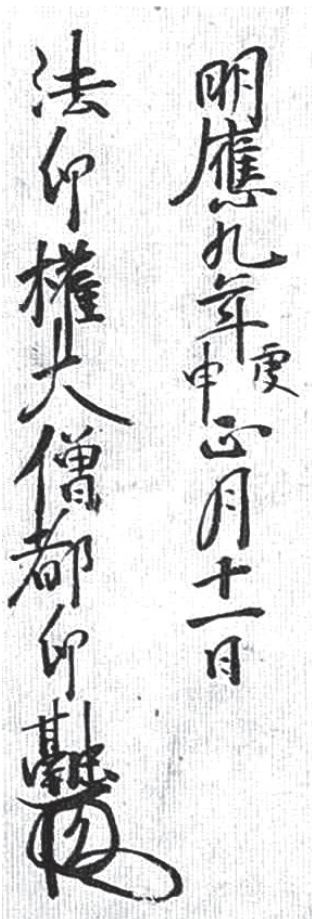 明應九年庚申正月十一日
法印權大僧都印融